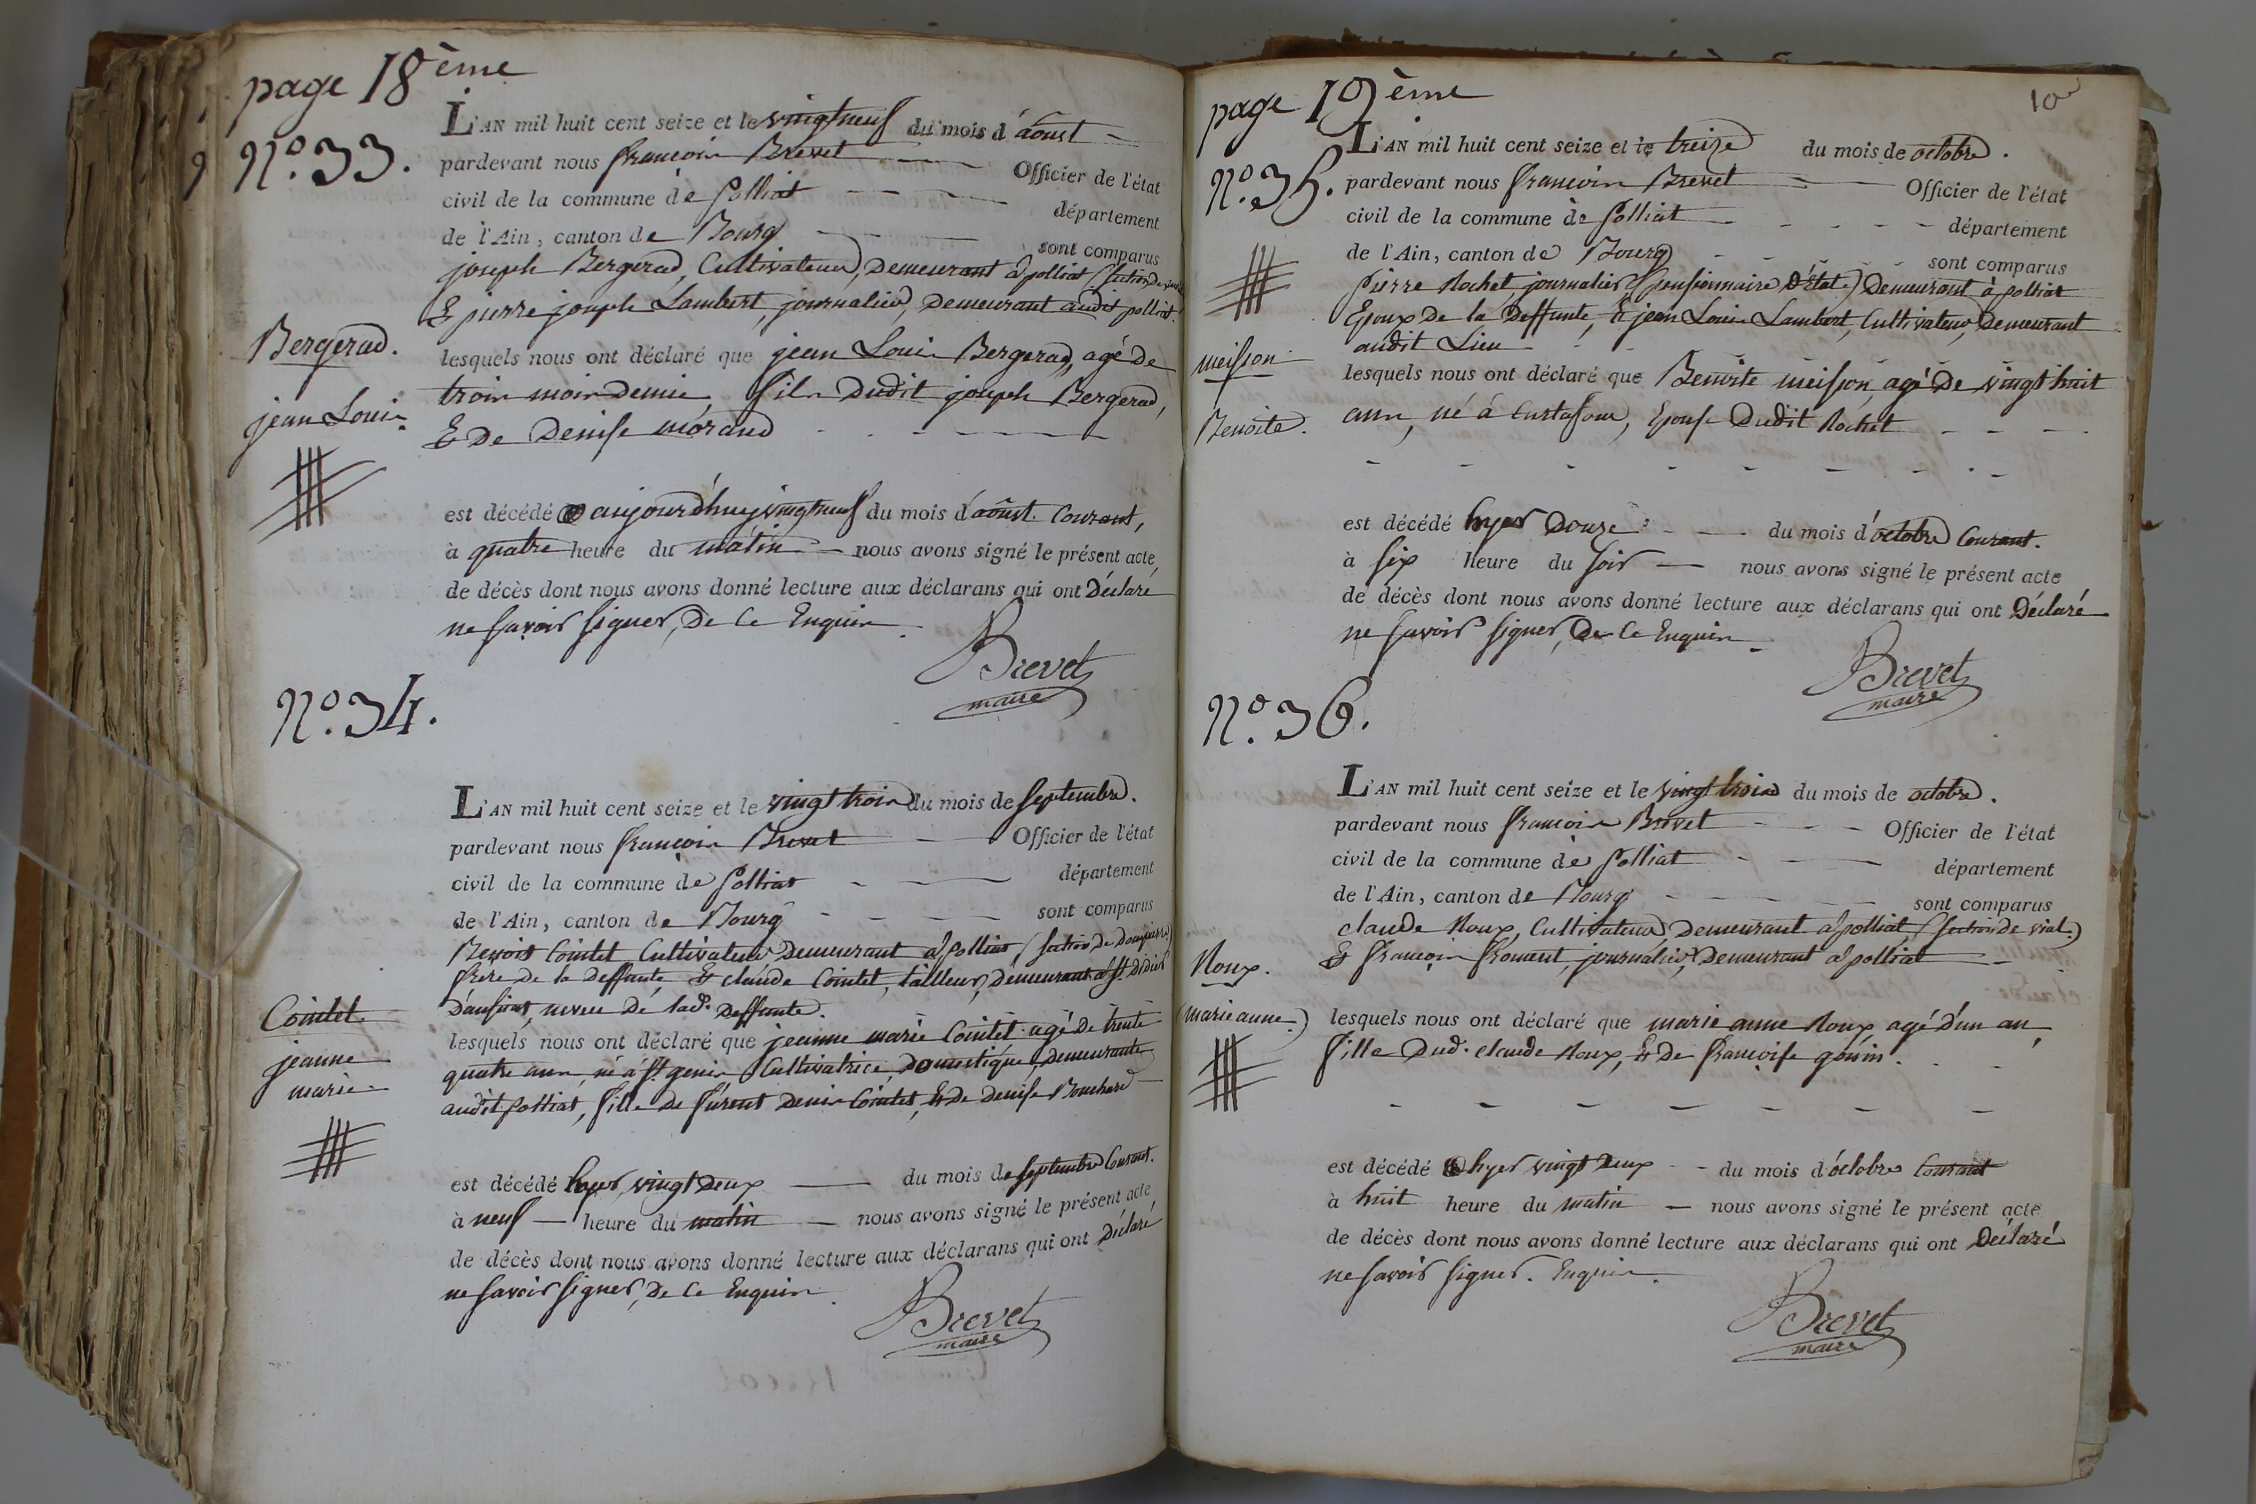 page 18ème
N.º 33.
L'AN mil huit cent seize et le vingtneuf du mois d'août
pardevant nous françois Brevet Officier de l'état
civil de la commune de polliat département
de l'Ain, canton de Bourg sont comparus
joseph Bergerad, Cultivateur, Demeurant à polliat (section de
& pierre joseph Lambert, journalier, demeurant audit polliat.
Bergerad.
lesquels nous ont déclaré que jean Louis Bergerad, agé de
jean Louis
trois mois demie, fils Dudit joseph Bergerad,
& De Denise morand
est décédé aujourd'huy vingtneuf du mois d'août Courant,
à quatre heure du matin nous avons signé le présent acte
de décès dont nous avons donné lecture aux déclarans qui ont Déclaré
ne savoir signer, de Ce Enquis.
Brevet
maire
N.º 34.
L'AN mil huit cent seize et le vingt trois du mois de septembre.
pardevant nous françois Brevet Officier de l'état
civil de la commune de polliat département
de l'Ain, canton de Bourg sont comparus
Benoit Cointet Cultivateur Demeurant à polliat, (section de
frere de la deffunte & claude Cointet, tailleur, demeurant à St. Didier
D'aussiat, neveu de lad. Deffunte.
Cointet
lesquels nous ont déclaré que jeanne marie Cointet agé de trente
jeanne
quatre ans, né à St. genis Cultivatrice, Domestique, demeurante
marie
audit polliat, fille de furent Denis Cointet, & De denise Bouchard
est décédé hyer, vingt Deux du mois de septembre Courant.
à neuf heure du matin nous avons signé le présent acte
de décès dont nous avons donné lecture aux déclarans qui ont Déclaré
ne savoir signer, de Ce Enquis.
Brevet
maire
page 19ème
10
N.º 35.
L'AN mil huit cent seize et le treize du mois de octobre.
pardevant nous françois Brevet Officier de l'état
civil de la commune de polliat département
de l'Ain, canton de Bourg sont comparus
pierre Rochet, journalier (pensionnaire D'Etat.) Demeurant à polliat
Epoux De la Deffunte, & jean Louis Lambert, Cultivateur, Demeurant
audit Lieu
meisson
lesquels nous ont déclaré que Benoite meisson, agé De vingt huit
Benoite.
ans, né à Curtafond, Epouse Dudit Rochet
est décédé hyer Douze du mois d'octobre Courant.
à six heure du soir nous avons signé le présent acte
de décès dont nous avons donné lecture aux déclarans qui ont Déclaré
ne savoir signer, De Ce Enquis.
Brevet
maire
N.º 36.
L'AN mil huit cent seize et le vingt trois du mois de octobre.
pardevant nous françois Brevet Officier de l'état
civil de la commune de polliat département
de l'Ain, canton de Bourg sont comparus
claude Roux, Cultivateur Demeurant à polliat (section de vial.)
& françois froment, journalier, Demeurant à polliat
Roux.
(marie anne.)
lesquels nous ont déclaré que marie anne Roux, agé d'un an,
fille Dud. claude Roux, & De françoise gonin.
est décédé hyer vingt Deux du mois d'octobre Courant
à huit heure du matin nous avons signé le présent acte
de décès dont nous avons donné lecture aux déclarans qui ont Déclaré
ne savoir signer. Enquis.
Brevet
maire